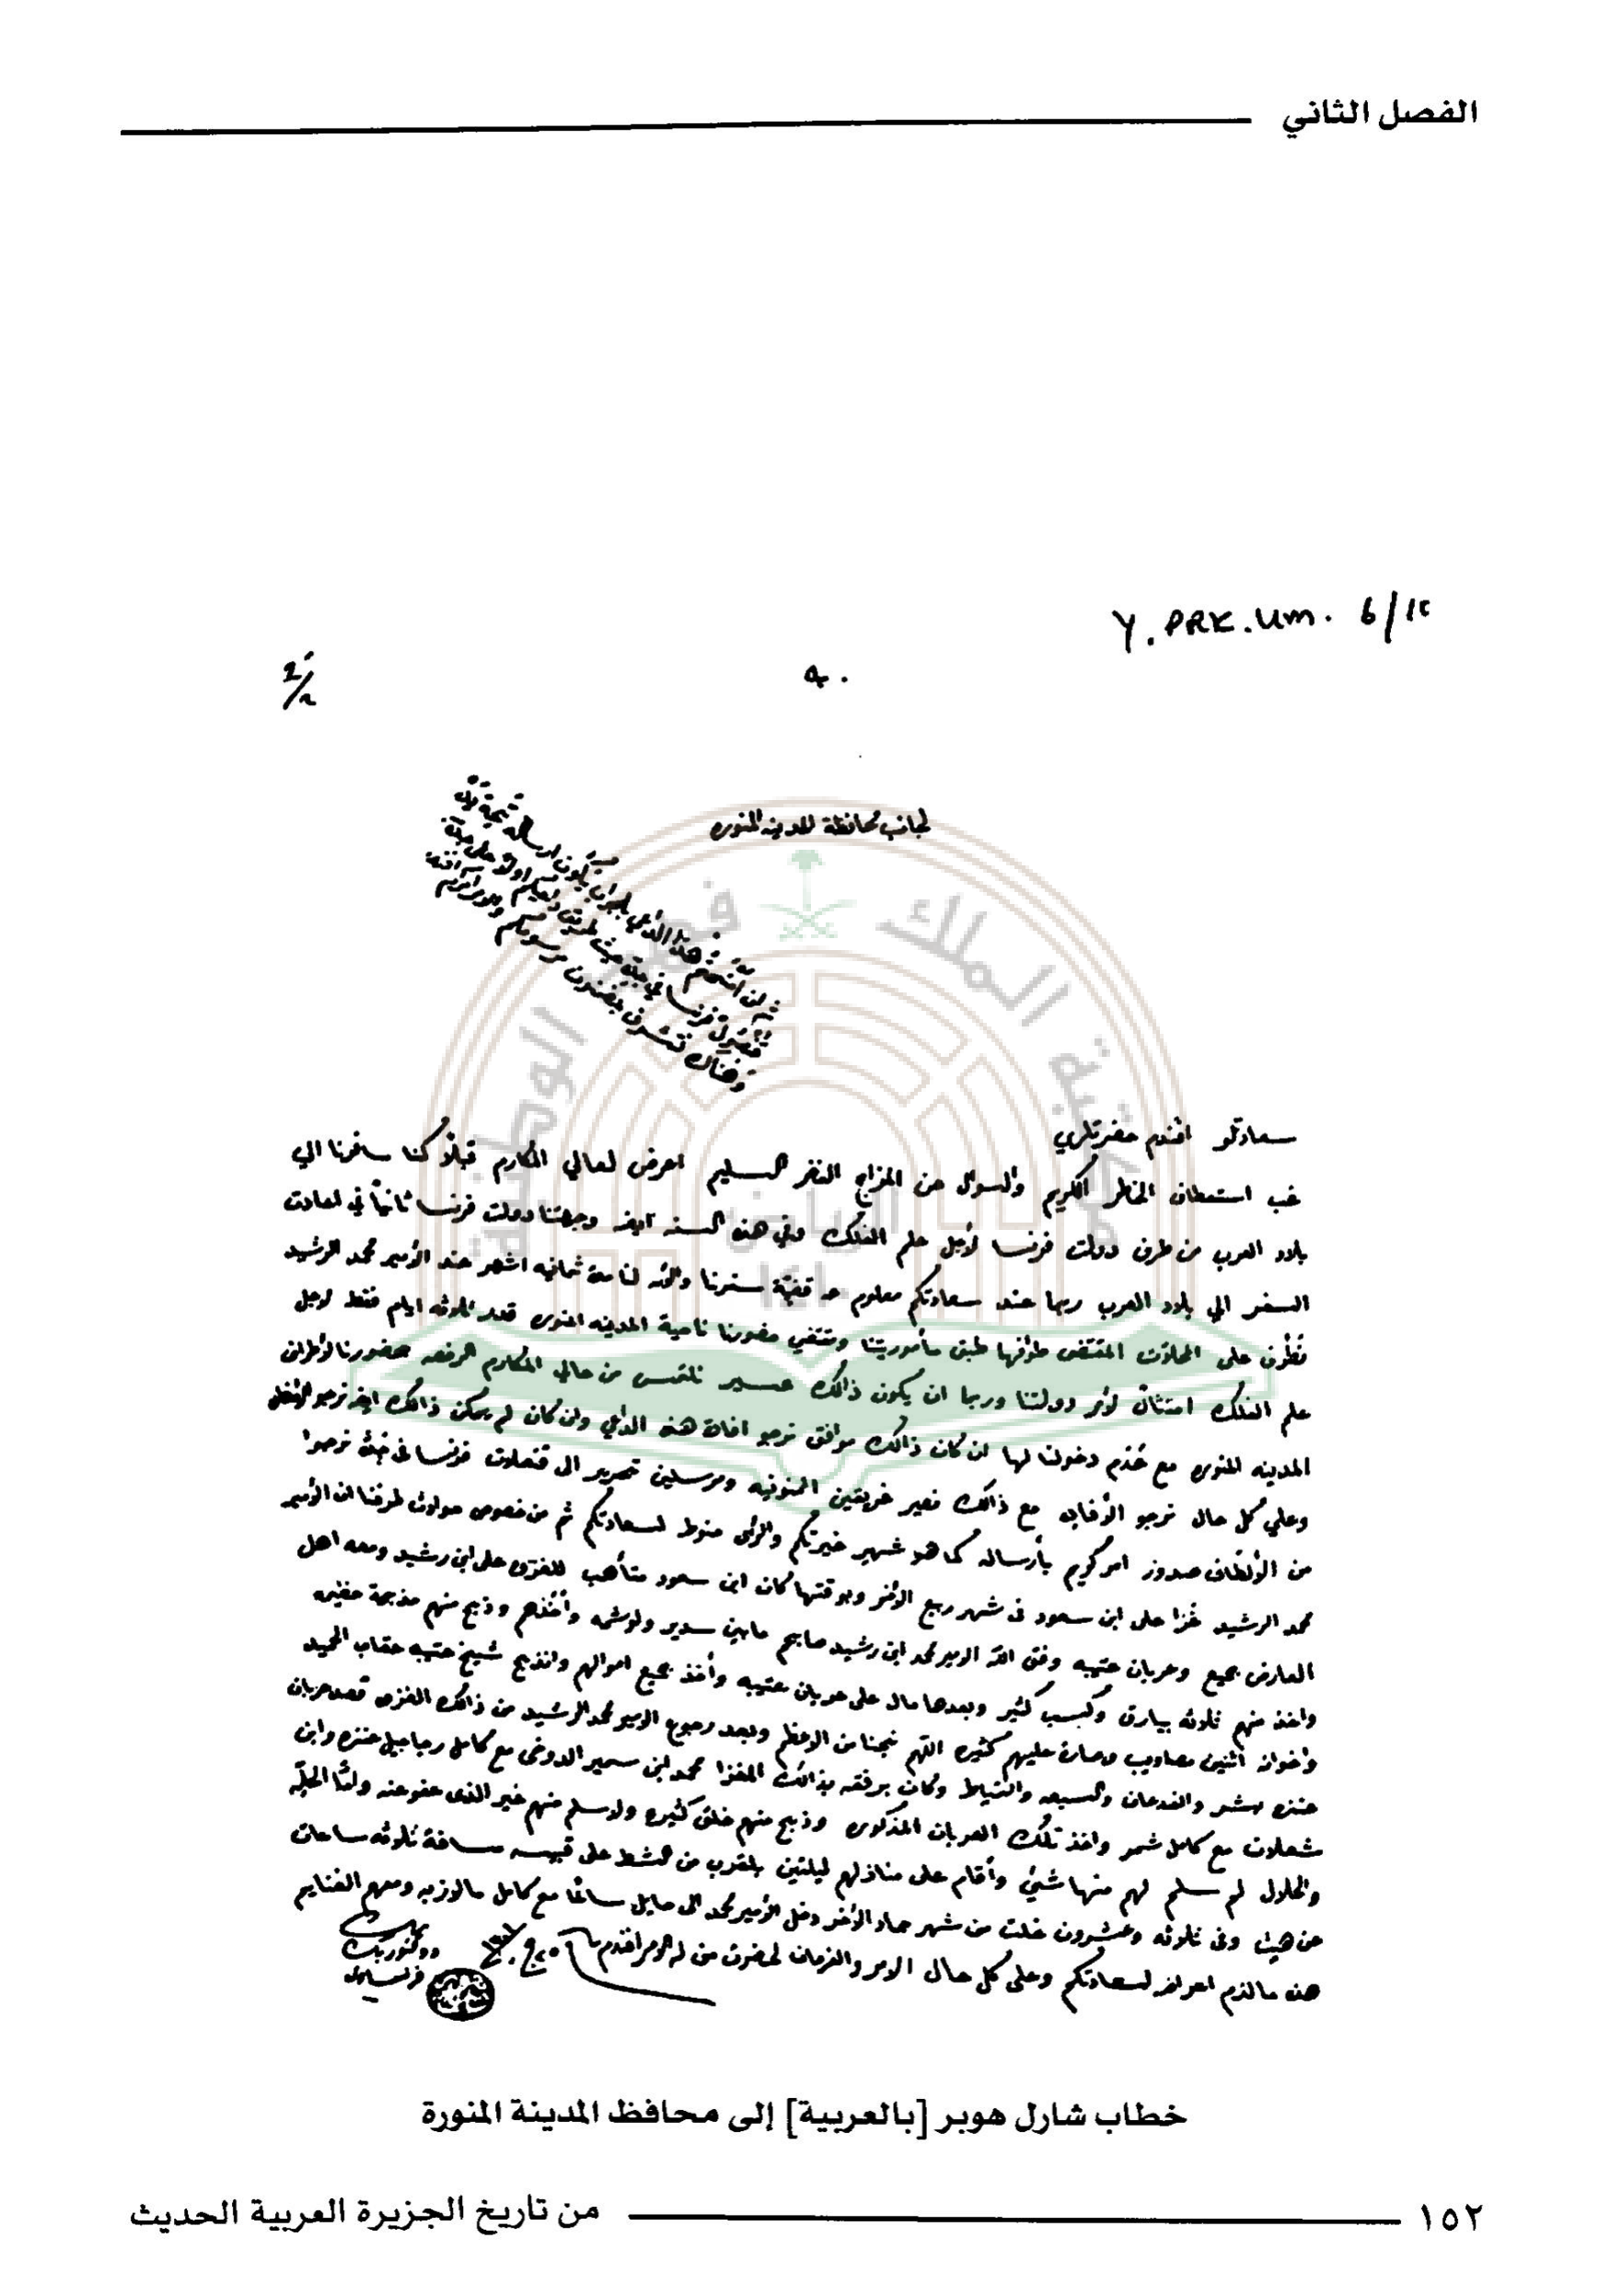 الفصل الثاني
Y. PRK. Um. 6/10
لجانب محافظة المدينه المنوره
سعادتلو افندم حضرتلري
غب استعطاف الخاطر الكريم والسوال عن المزاج الفخر السليم اعرض لعالي المكارم قبلاً كنا سافرنا الي
بلاد العرب من طرف دولت فرنسا لأجل علم الفلك وفي هذه السنه ايضه وجهتنا دولت فرنسا ثانياً في لعادت
السفر الي بلاد العرب ربما عند سعادتكم معلوم عن قضية سفرنا والأن لنا مدة ثمانيه اشهر عند الأمير محمد الرشيد
نطرف على المحلات المقتضى طوافها طبق مأموريتنا ومقتضي حضورنا ناحية المدينه المنوره قدر ثلاثه ايام فقط لاجل
علم الفلك امتثال لأمر دولتنا وربما ان يكون ذالك عسير نلتمس من عالي المكارم الرخصه بحضورنا لأطراف
المدينه المنوره مع عدم دخولنا لها ان كان ذالك موافق نرجو افادة هذه الداعي وان كان لم يمكن ذالك ايضه نرجو
وعلي كل حال نرجو الأفاده مع ذالك نصير غريقين الممنونيه ومرسلين تحرير الى قنصلات فرنسا في جدة نرجوا
من الألطاف صدور امر كريم بأرساله كما هو شهير غيرتكم والرأى منوط لسعادتكم ثم من خصوص حوادث طرفنا ان الأمير
محمد الرشيد غزا على ابن سعود في شهر ربيع الأخر وبوقتها كان ابن سعود متأهب للغزو على ابن رشيد ومعه اهل
العارض جميع وعربان عتيبه وفق الله الامير محمد ابن رشيد صابحهم مابين سدير والوشم وأخذهم وذبح منهم مذبحة عظيمه
واخذ منهم ثلاثه بيارق وكسب كثير وبعدها مال على عربان عتيبه وأخذ جميع اموالهم وانذبح شيخ عتيبه عقاب الحميد
واخوانه اثنين معاويب وصارة عليهم كثيره اللهم نجنا من الاعظم وبعد رجوع الامير محمد الرشيد من ذالك الغزو قصد عربان
عنزه بشر والفدعان والسبعه وكان برفقه بذالك المغزا محمد ابن سمير الدوخي مع كامل رجاجيل عنزه وابن
شعلان مع كامل شمر واخذ تلك العربان المذكوره وذبح منهم خلق كثيره ولاسلم منهم غير الذى عفو عنه
والحلال لم سلم لهم منها شيئ وأقام على منازلهم ليلتين بالقرب من الشط على قبيسه مسافة ثلاثه ساعات
عن هيت وفى ثلاثه وعشرون خلت من شهر جماد الأخر دخل الأمير محمد الى حايل سالماً مع كامل مالازبه ومعهم الغنايم
هذه مالزم اعراضه لسعادتكم وعلى كل حال الامر والفرمان لحضرت من له الامر افندم
خطاب شارل هوبر [بالعربية] إلى محافظ المدينة المنورة
١٥٢ من تاريخ الجزيرة العربية الحديث